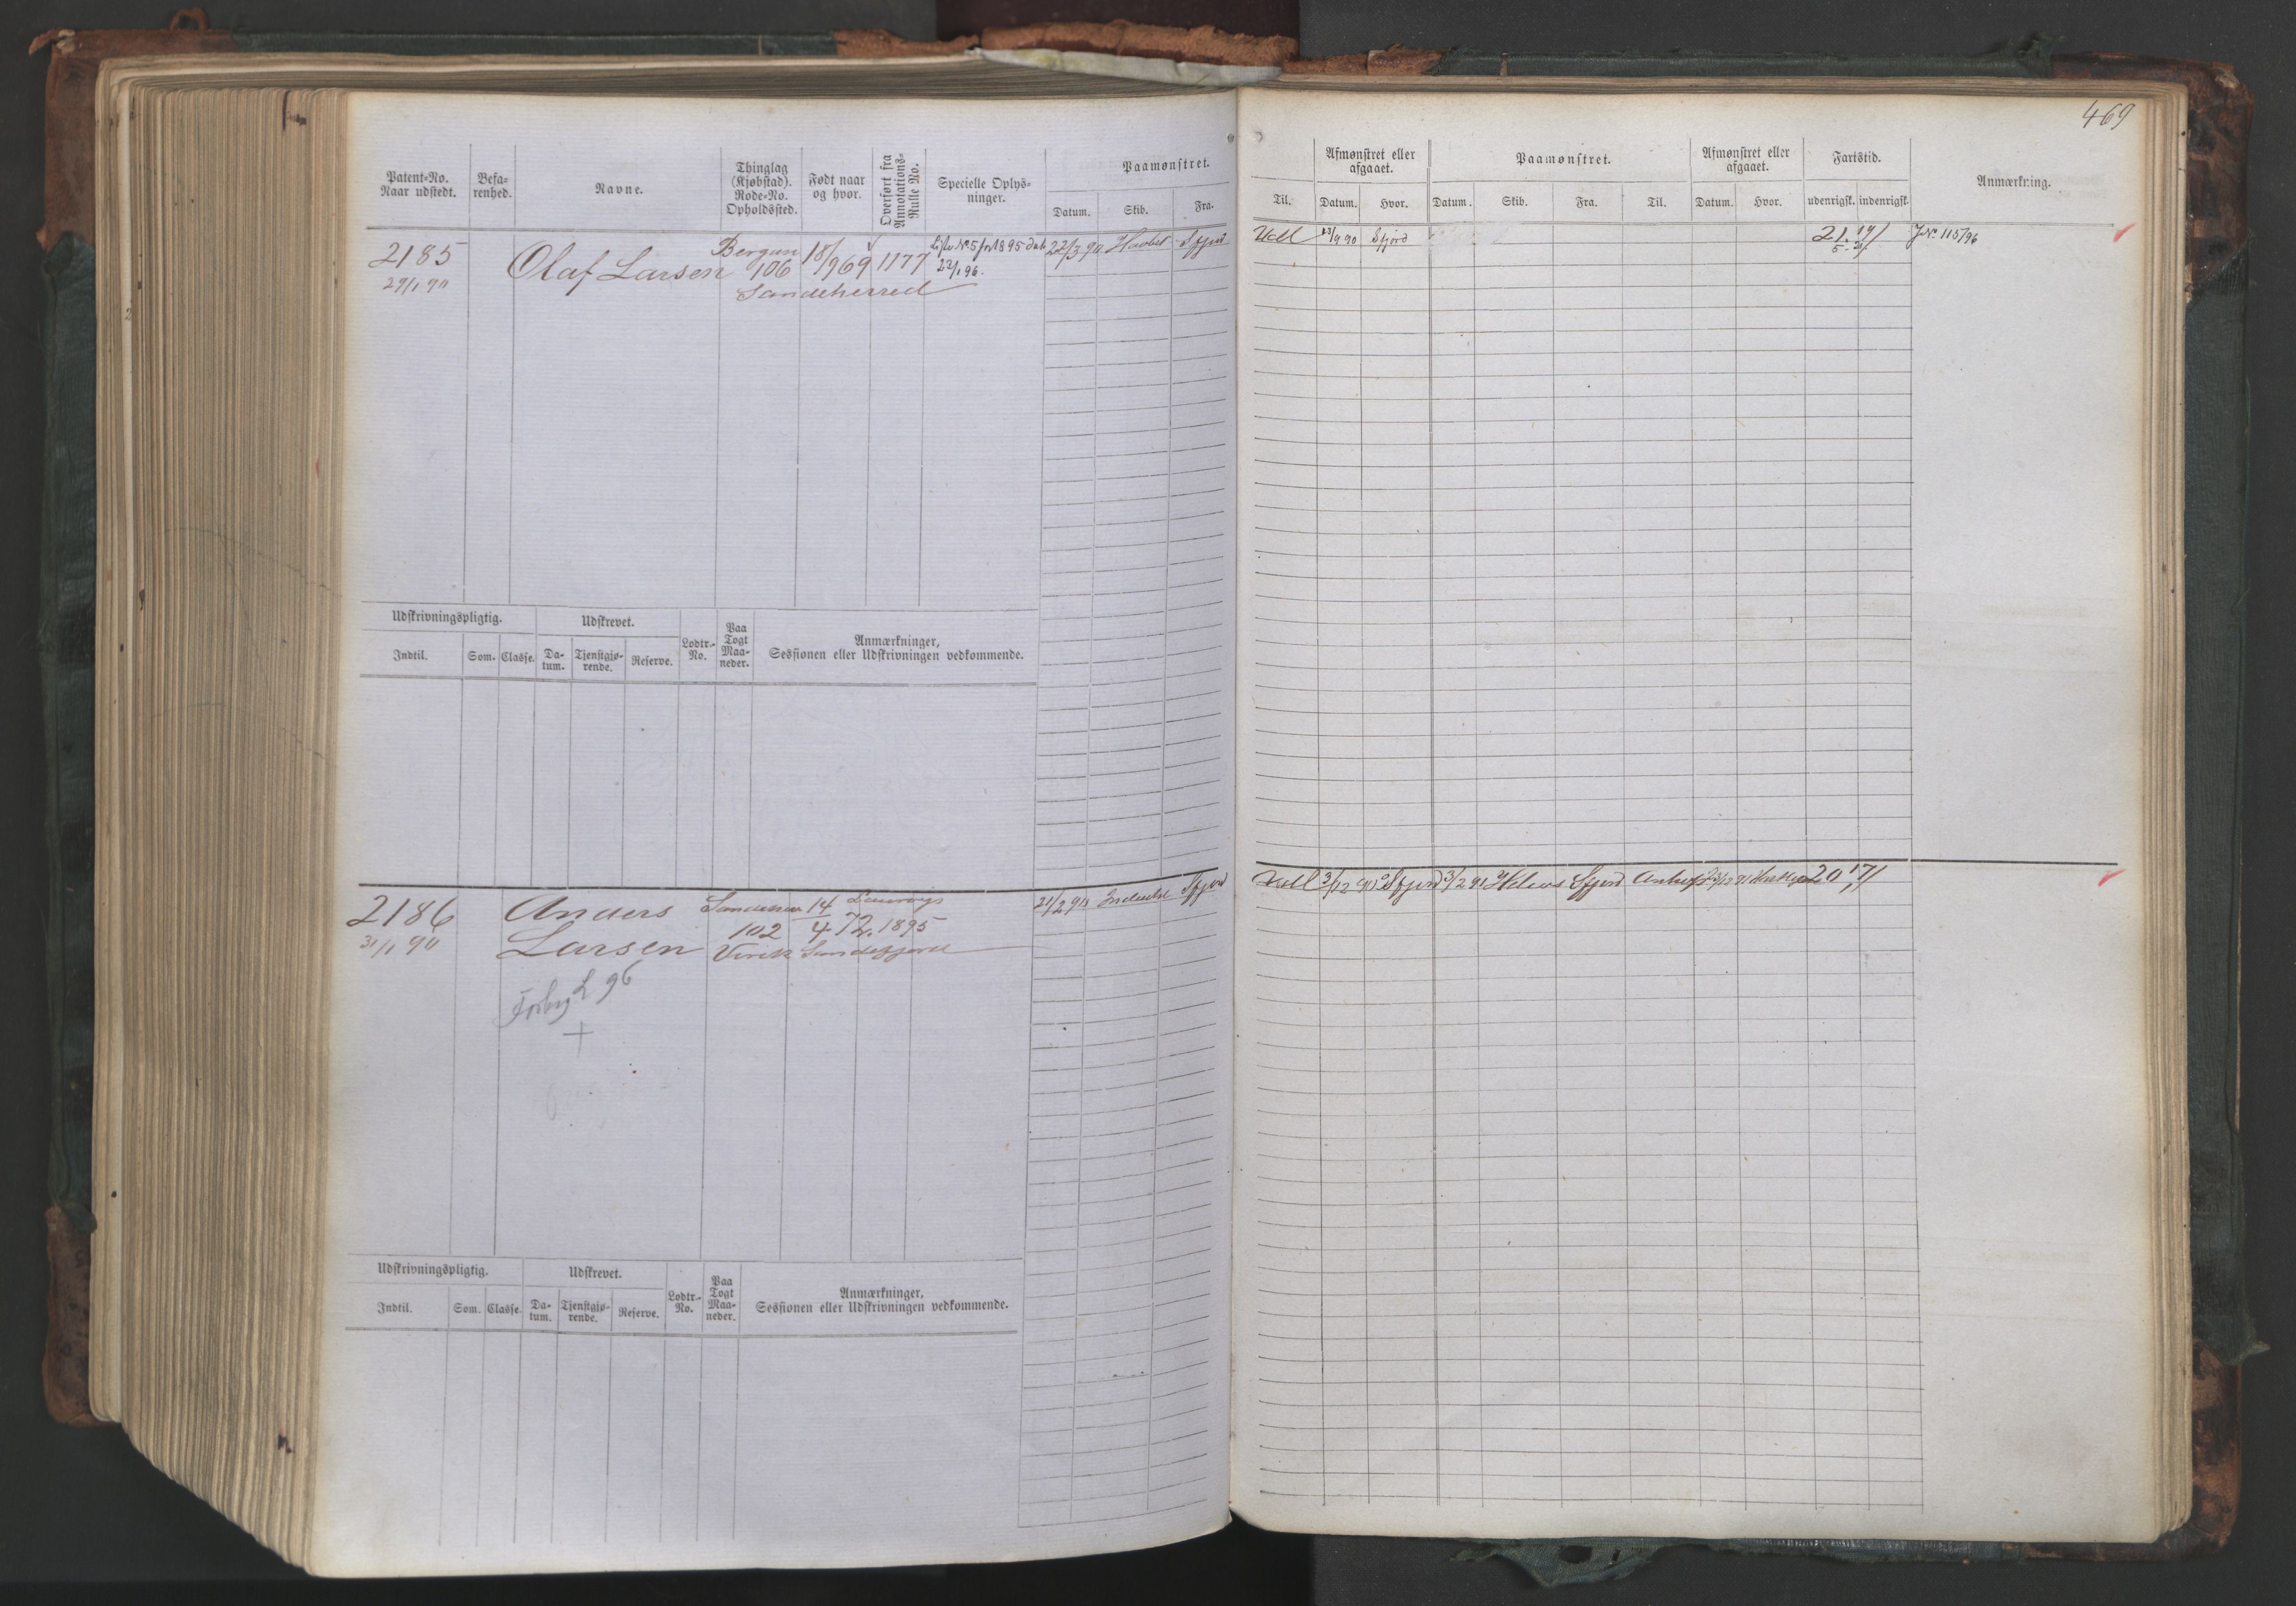 469
Patent-No.
Naar udstedt.
Befa-
renhed.
Navne.
Thinglag
(Kjøbstad).
Rode-No.
Opholdssted.
Født naar
og hvor.
Overført fra
Annotations-
Rulle No.
Specielle Oplys-
ninger.
Paamønstret.
Datum.
Skib.
Fra.
Til.
Afmønstret eller
afgaaet.
Datum.
Hvor.
Paamønstret.
Datum.
Skib.
Fra.
Til.
Afmønstret eller
afgaaet.
Datum.
Hvor.
Fartstid.
udenrigsk.
indenrigsk.
Anmærkning.
2185
29/1 90
Olaf Larsen
Bergan
106
Sandeherred
18/9 69
1177
Liste No 5 for 1895 dat
22/1 96.
22/3 90 Havbel Sfjord
Vell 13/9 90 Sfjord
21.
J No. 115/96
Udskrivningspligtig.
Indtil.
Som.
Classe.
Udskrevet.
Da-
tum.
Tjenstgjø-
rende.
Reserve.
Lodtr.-
No.
Paa
Togt
Maa-
neder.
Anmærkninger,
Sessionen eller Udskrivningen vedkommende.
2186
31/1 90
Anders
Larsen
102
Virik Sandefjord
14
4 72. 1895
21/2 90 Sfjord
Vell 3/12 90 Sfjord 3/2 91 Sfjord
20 17/
96
+
Udskrivningspligtig.
Indtil.
Som.
Classe.
Udskrevet.
Da-
tum.
Tjenstgjø-
rende.
Reserve.
Lodtr.-
No.
Paa
Togt
Maa-
neder.
Anmærkninger,
Sessionen eller Udskrivningen vedkommende.